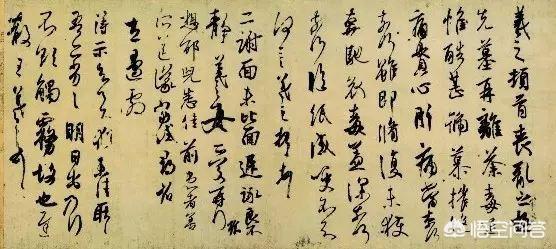 羲之頓首喪亂之極
先墓再離荼毒追
惟酷甚號慕摧絕
痛貫心肝痛當奈何
奈何雖即脩復未獲
奔馳哀毒益深奈何
奈何臨紙感哽不知
何言羲之頓首頓首
二謝面未比面遲詠良不
靜羲之女愛再拜
想邵兒悉佳前患者善
所送議當試尋省
左邊劇
得示知足下猶未佳耿耿
吾亦劣劣明日出乃行
不欲觸霧故也遲
散王羲之頓首
悟空问答